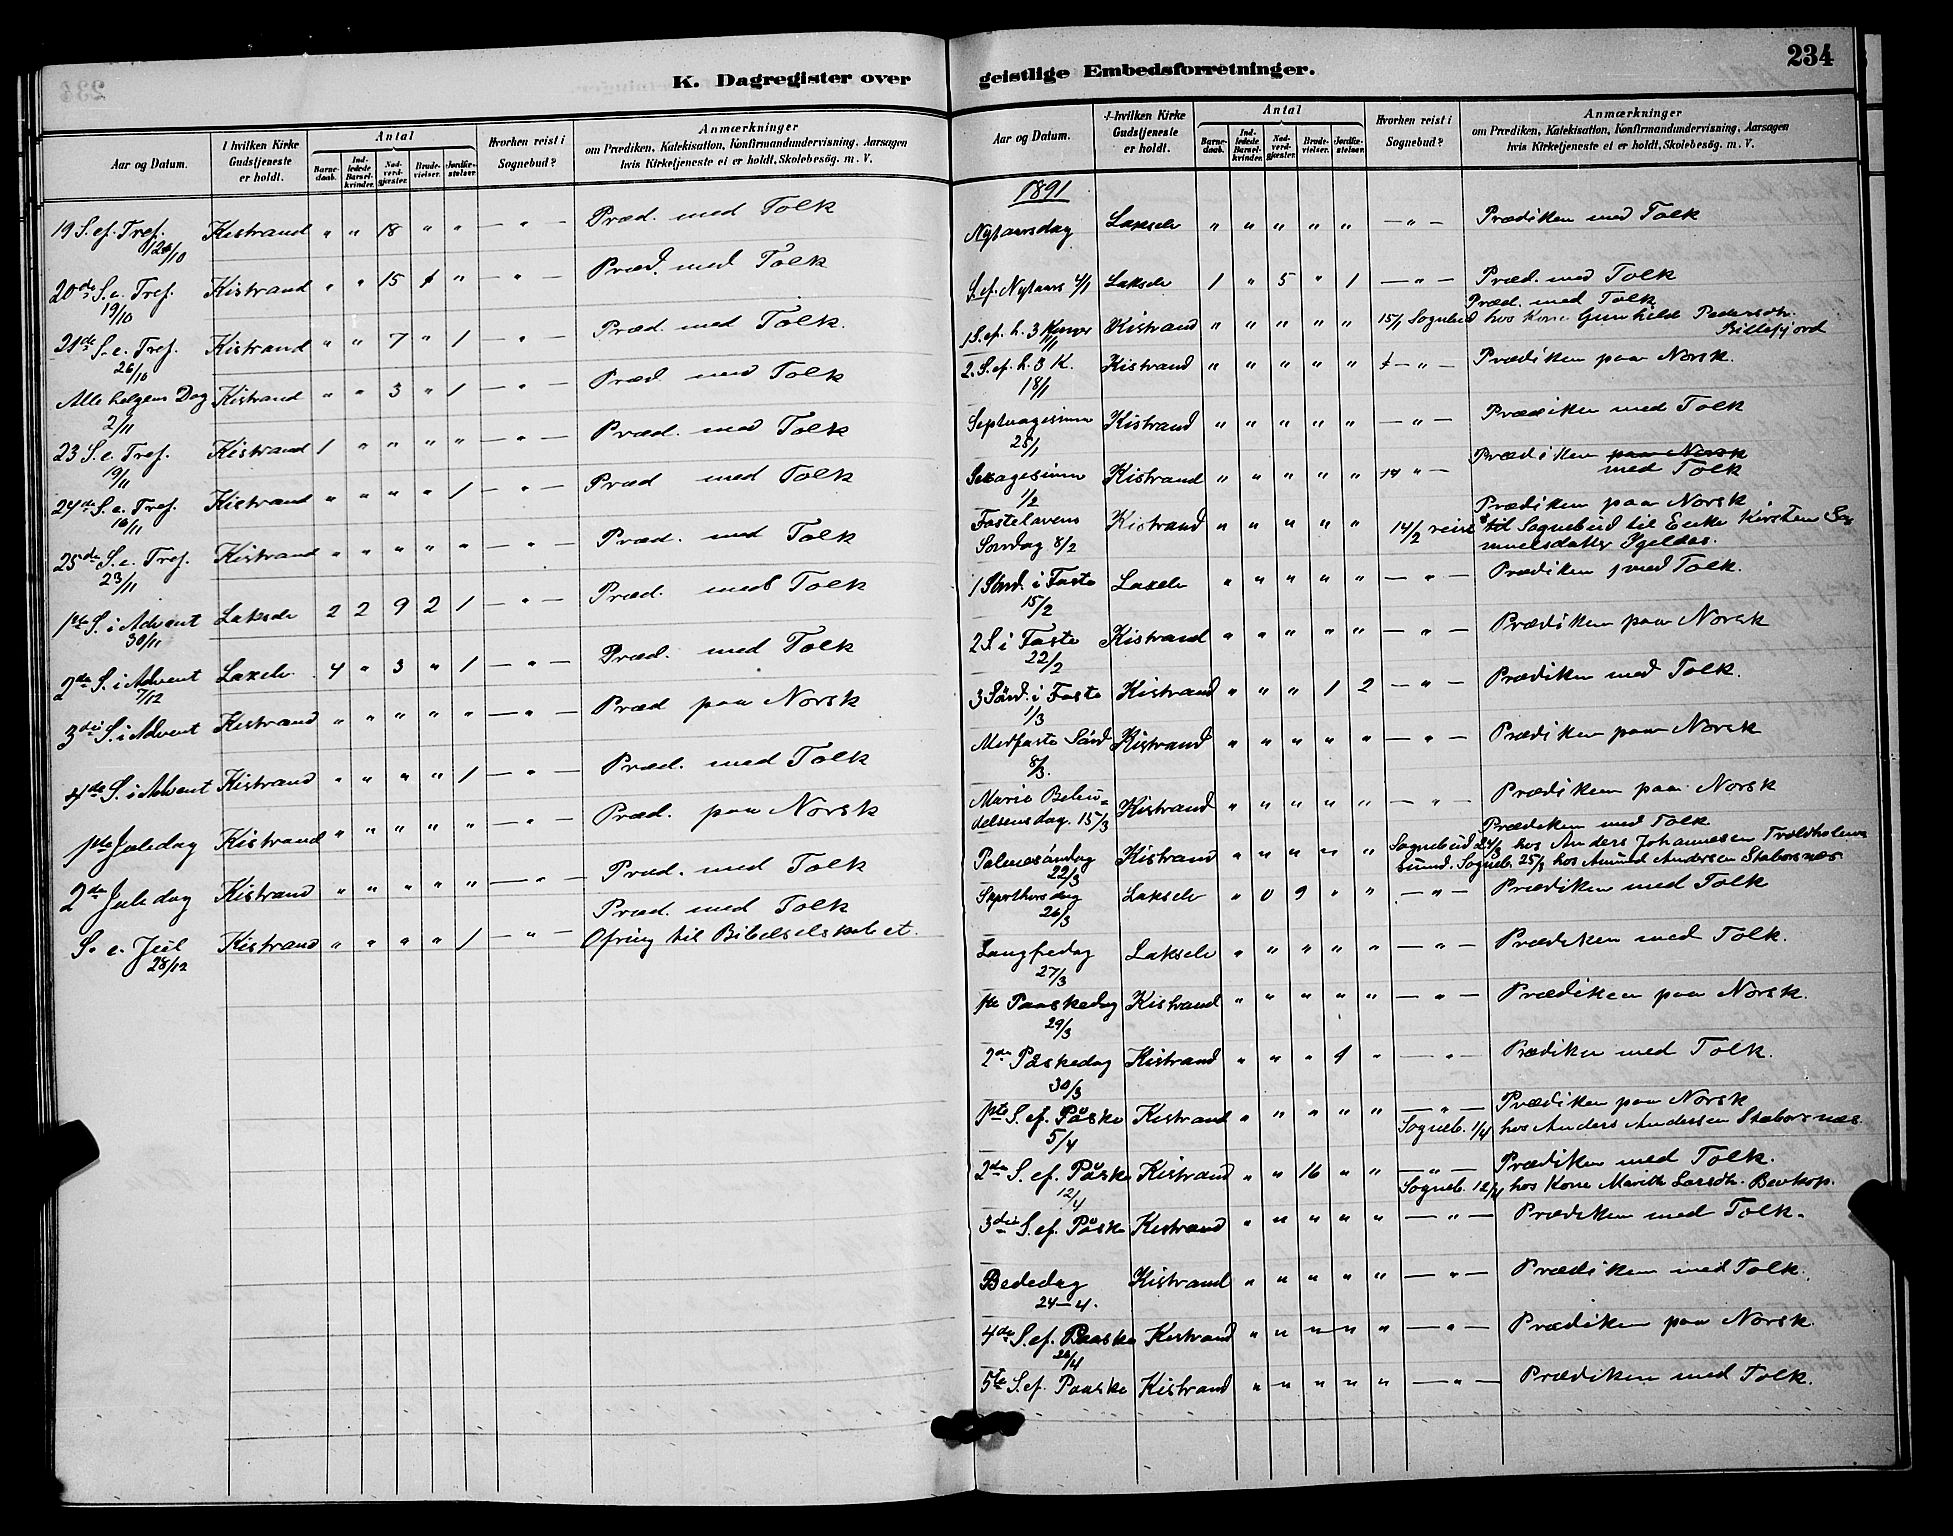 K. Dagregister over
Aar og Datum.
I hvilken Kirke Gudstjeneste er holdt.
Antal
Barne-daab.
Ind-ledede Barsel-kvinder.
Nad-verd-gjæster.
Brude-vielser.
Jordfæ-stelser.
Hvorhen reist i Sognebud?
Anmærkninger
om Prædiken, Katekisation, Konfirmandundervisning, Aarsagen
hvis Kirketjeneste ei er holdt, Skolebesög. m. V.
19 S. ef. Tref. Kistrand " " 18 " " — " — Præd. med Tolk
20de S. e. Tref. 19/10 Kistrand " " 15 1 " — " — Præd. med Tolk
21de S. e. Tref. 26/10 Kistrand " " 7 " 1 — " — Præd. med Tolk.
Alle helgens Dag 2/11 Kistrand " " 3 " 1 — " — Præd. med Tolk
23 S. e. Tref. Kistrand 1 " " " " — " — Præd. med Tolk
24de S. e. Tref. 16/11 Kistrand " " " " 1 — " — Præd med Tolk
25de S. e. Tref. 23/11 Kistrand " " " " " — " — Præd. med Tolk
1ste S. i Advent 30/11 Lakselv 2 2 9 2 1 — " — Præd. med Tolk
2den S. i Advent 7/12 Laxelv 4 " 3 " 1 — " — Præd. med Tolk
3die S. i Advent Kistrand " " " " " — " — Præd paa Norsk
4de S. i Advent Kistrand " " " " 1 — " — Præd. med Tolk
1ste Juledag Kistrand " " " " " — " — Præd. paa Norsk
2den Juledag Kistrand " " " " " — " — Præd. med Tolk
S. e. Jul 28/12 Kistrand " " " " 1 — " — Præd. med Tolk
Ofring til Bibelselskabet.
geistlige Embedsforretninger.
234
Aar og Datum.
I hvilken Kirke Gudstjeneste er holdt.
Antal
Barne-daab.
Ind-ledede Barsel-kvinder.
Nad-verd-gjæster.
Brude-vielser.
Jordfæ-stelser.
Hvorhen reist i Sognebud?
Anmærkninger
om Prædiken, Katekisation, Konfirmandundervisning, Aarsagen
hvis Kirketjeneste ei er holdt, Skolebesög. m. V.
1891
Nytaarsdag Lakselv " " " " " — " — Prædiken med Tolk
S. ef. Nytaar 4/1 Lakselv 1 " 5 " 1 — " — Præd. med Tolk
Præd. med Tolk
1 S. ef. h. 3 Konger Kistrand " " " " " 15/1 Sognebud hos Kone Gunhilde Pedersdtr.
Billefjord
2. S. ef. h. 3 K. 18/1 Kistrand " " " " " — " — Prædiken paa Norsk.
Septuagesima 25/1 Kistrand " " " " " — " — Prædiken med Tolk
Sexagesima 1/2 Kistrand " " " " " " — Prædiken paa Norsk
med Tolk
Prædiken paa Norsk
Fastelavens Söndag 8/2 Kistrand " " " " " 14/2 reist til Sognebud til Enke Kirsten Sa-
muelsdatter Igeldas.
1 Sönd. i Faste 15/2 Laxelv " " " " " — " — Prædiken med Tolk.
2 S. i Faste 22/2 Kistrand " " " " " — " — Prædiken paa Norsk
3 Sönd. i Faste 1/3 Kistrand " " " 1 2 — " — Prædiken med Tolk.
Midfaste Sönd 8/3. Kistrand " " " " " — " — Prædiken paa Norsk
Maria Bebu-delsesdag. 15/3 Kistrand " " " " " — " — Prædiken paa Norsk
Prædiken med Tolk
Palmesöndag 22/3 Kistrand " " " " " Sognebud 24/3 hos Anders Johannesen Troldholm-
sund. Sogneb. 25/3 hos Amund Andersen Stabursnæs
Skjærthorsdag 26/3 Lakselv " 0 9 " " — " — Prædiken med Tolk
Langfredag 27/3 Lakselv " " " " " — " — Prædiken med Tolk.
1ste Paaskedag 29/3 Kistrand " " " " " — " — Prædiken paa Norsk.
2den Påskedag 30/3 Kistrand " " " 1 " — " — Prædiken med Tolk.
1ste S. ef. Påske 5/4 Kistrand " " " " " — " — Prædiken paa Norsk
Sogneb. 1/4 hos Anders Andersen Stabursnæs.
2den S. ef. Påske 12/4 Kistrand " " 16 " " — " — Prædiken med Tolk.
Sogneb. 12/4 hos Kone Marith Larsdtr.
3die S. ef. Påske Kistrand " " " " " — " — Prædiken med Tolk.
Bededag 24–4. Kistrand " " " " " — " — Prædiken med Tolk.
4de S. ef. Paaske 26/4 Kistrand " " " " " — " — Prædiken paa Norsk.
5te S. ef. Paaske Kistrand " " " " " — " — Prædiken med Tolk.